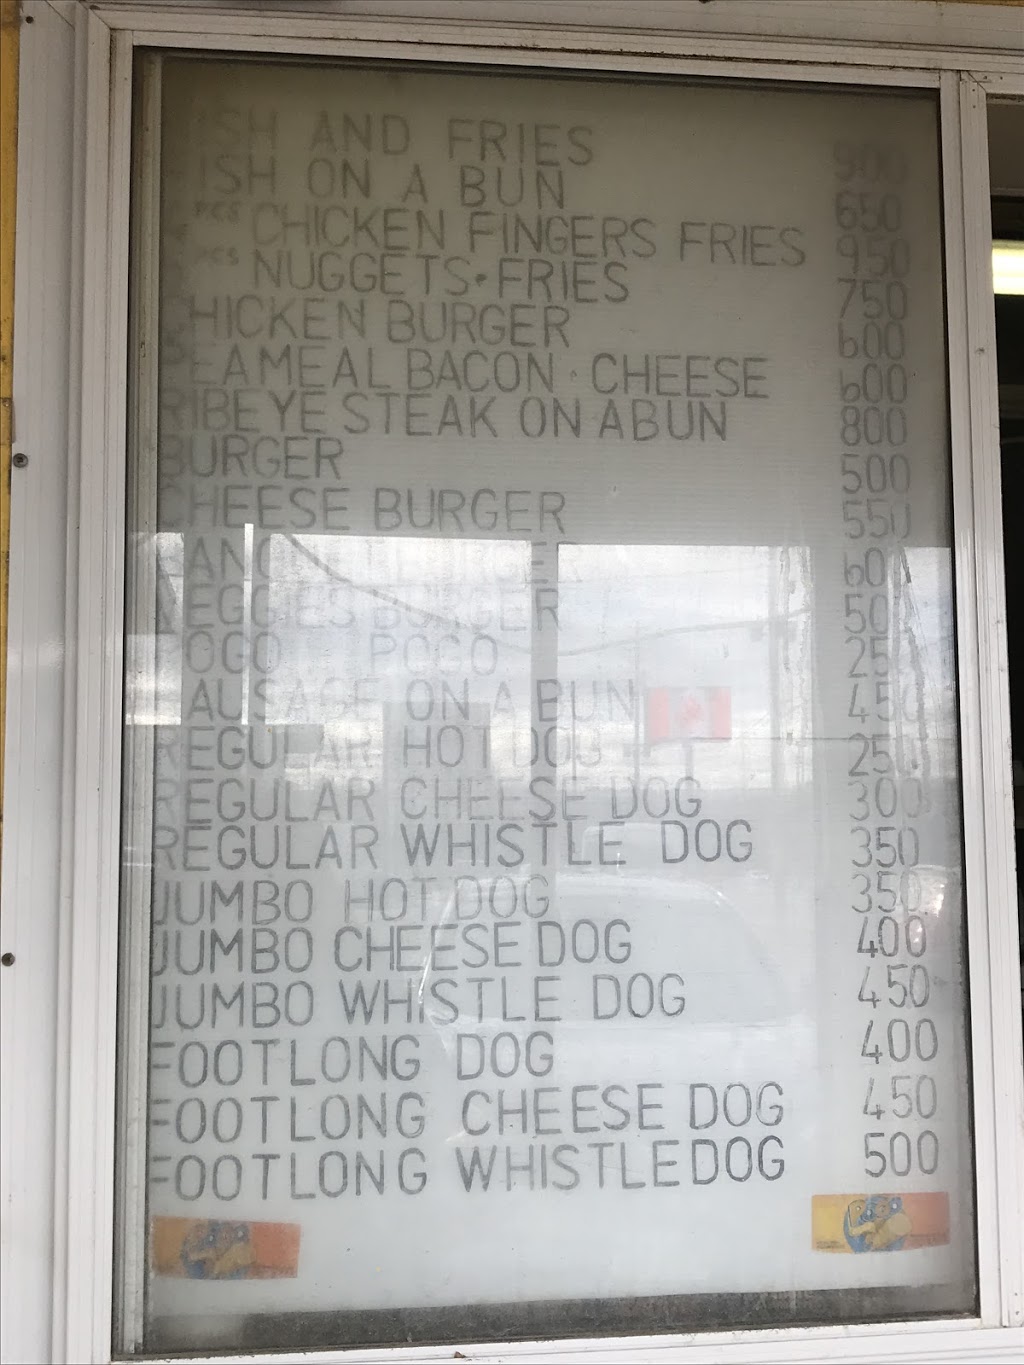 FISH AND FRIES 900
FISH ON A BUN 650
PCS CHICKEN FINGERS FRIES 950
PCS NUGGETS · FRIES 750
CHICKEN BURGER 600
PEAMEAL BACON · CHEESE 600
RIBEYE STEAK ON A BUN 800
BURGER 500
CHEESE BURGER 550
BURGER 600
VEGGIES BURGER 500
POGO POGO 250
SAUSAGE ON A BUN 450
REGULAR HOT DOG 250
REGULAR CHEESE DOG 300
REGULAR WHISTLE DOG 350
JUMBO HOT DOG 350
JUMBO CHEESE DOG 400
JUMBO WHISTLE DOG 450
FOOTLONG DOG 400
FOOTLONG CHEESE DOG 450
FOOTLONG WHISTLE DOG 500